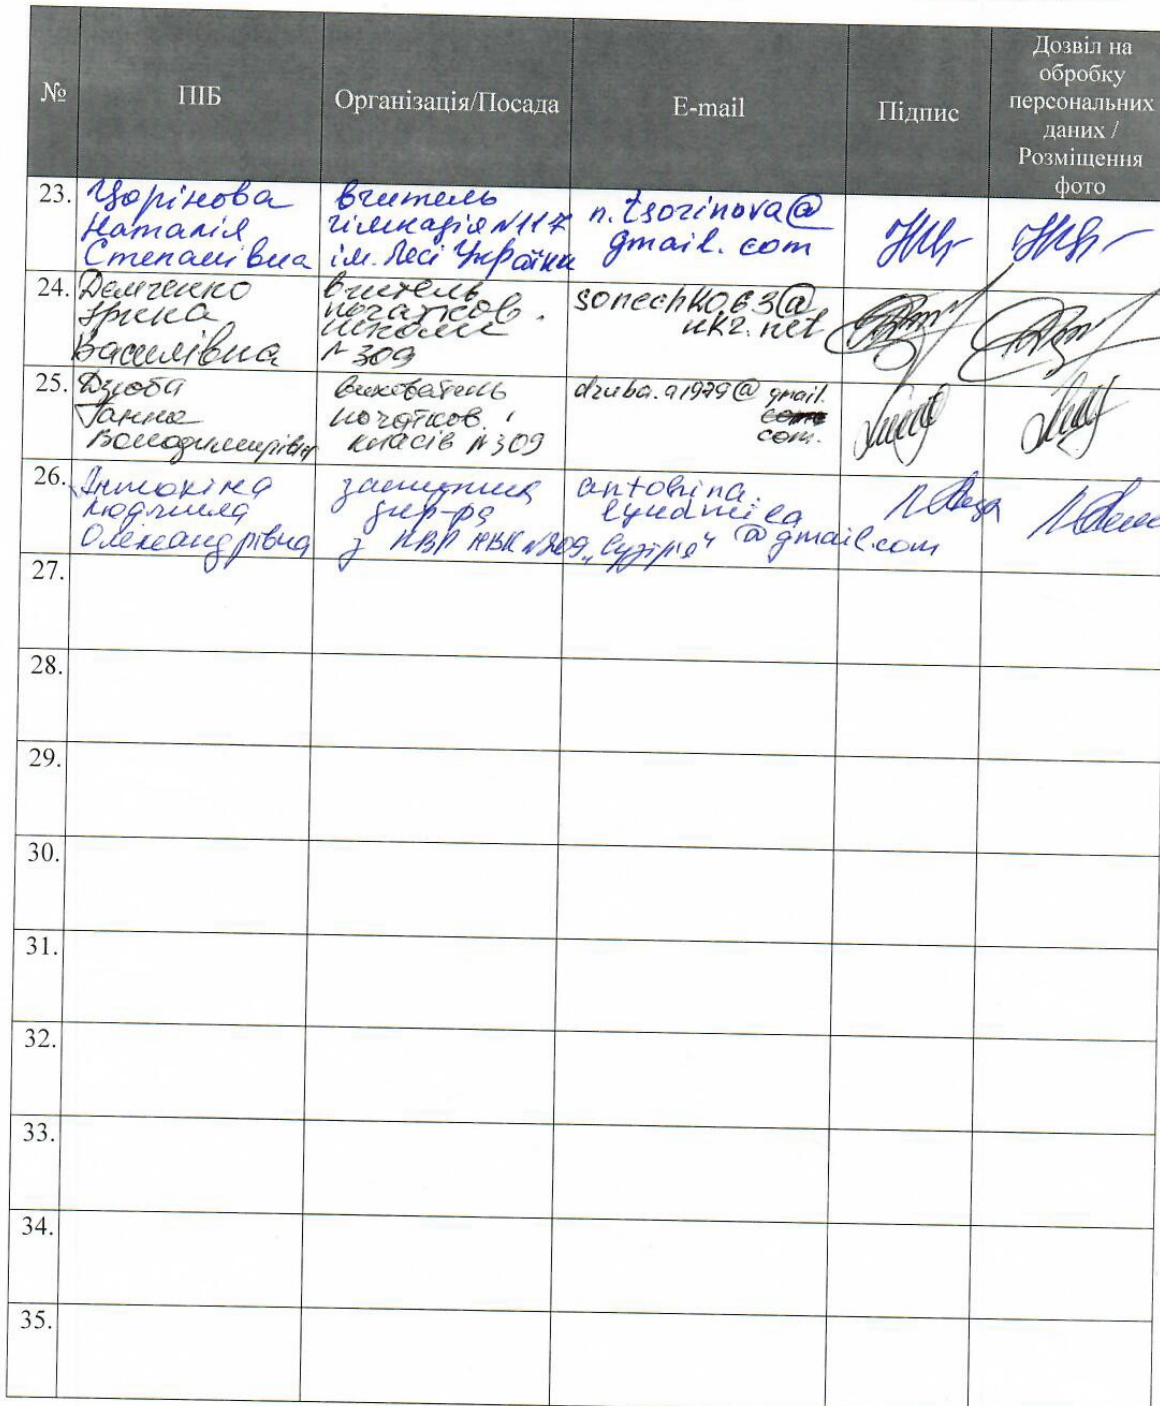 №
ПІБ
Організація/Посада
E-mail
Підпис
Дозвіл на
обробку
персональних
даних /
Розміщення
фото
23.
Цорінова
Наталія
Степанівна
вчитель
гімназія №117
ім. Лесі Українки
n.tsorinova@
gmail.com
24.
Демченко
Ірина
Василівна
вчитель
початков.
школи
№309
sonechko63@
ukr.net
25.
Дзюба
Ганна
Володимирівна
вихователь
початков.
класів №309
dzuba.a1979@gmail.
com.
26.
Антохіна
Людмила
Олександрівна
заступник
дир-ра
з НВР НВК №309 „Сузір'я"
antohina.
lyudmila
@gmail.com
27.
28.
29.
30.
31.
32.
33.
34.
35.